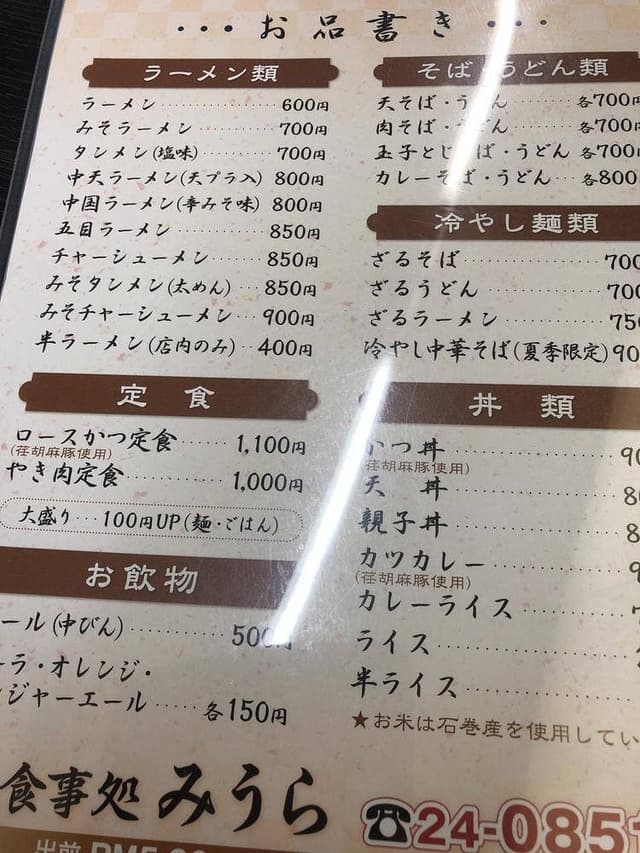 ・・・お品書き・・・
ラーメン類
ラーメン 600円
みそラーメン 700円
タンメン(塩味) 700円
中天ラーメン(天プラ入) 800円
中国ラーメン(辛みそ味) 800円
五目ラーメン 850円
チャーシューメン 850円
みそタンメン(太めん) 850円
みそチャーシューメン 900円
半ラーメン(店内のみ) 400円
定食
ロースかつ定食 1,100円
(荏胡麻豚使用)
やき肉定食 1,000円
大盛り…100円UP(麺・ごはん)
お飲物
ール(中びん) 500円
ーラ・オレンジ・
ンジャーエール 各150円
そば・うどん類
天そば・うどん 各700円
肉そば・うどん 各700円
玉子とじそば・うどん 各700
カレーそば・うどん 各800
冷やし麺類
ざるそば 700
ざるうどん 700
ざるラーメン 750
冷やし中華そば(夏季限定) 90
丼類
かつ丼 90
(荏胡麻豚使用)
天丼 80
親子丼 8
カツカレー 9
(荏胡麻豚使用)
カレーライス
ライス
半ライス
★お米は石巻産を使用してい
食事処 みうら
☎24-085
出前